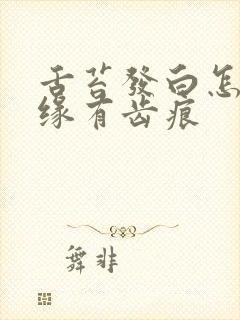 舌苔發白怎
缘有齿痕
舞非